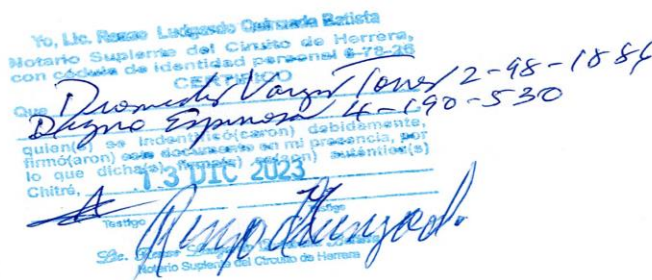 Yo, Lic. Renzo Ludgardo Quintada Batista
Notario Suplente del Circuito de Herrera,
con cédula de identidad personal 6-78-26
CERTIFICO
Que Diomedes Vargas Torres 2-98-1884
Digno Espinosa 4-190-530
quien(e) se indentificó(caron) debidamente,
firmó(aron) este documento en mi presencia, por
lo que dicha(s) firma(s) es(son) auténtica(s)
Chitré, 13 DIC 2023
Testigo Testigo
Lic.
Notario Suplente del Circuito de Herrera